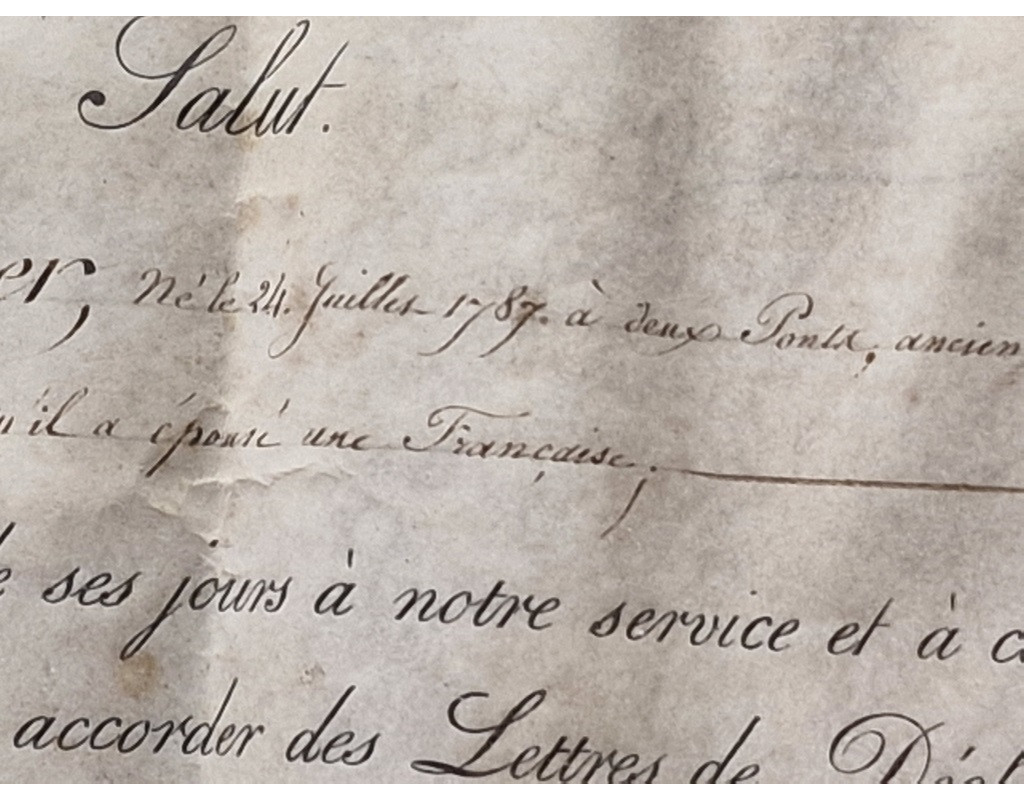 Salut.
er, Né le 24. Juillet 1787. à deux Ponts, ancien
u'il a épousé une Française,
e ses jours à notre service et à c
accorder des Lettres de Décl